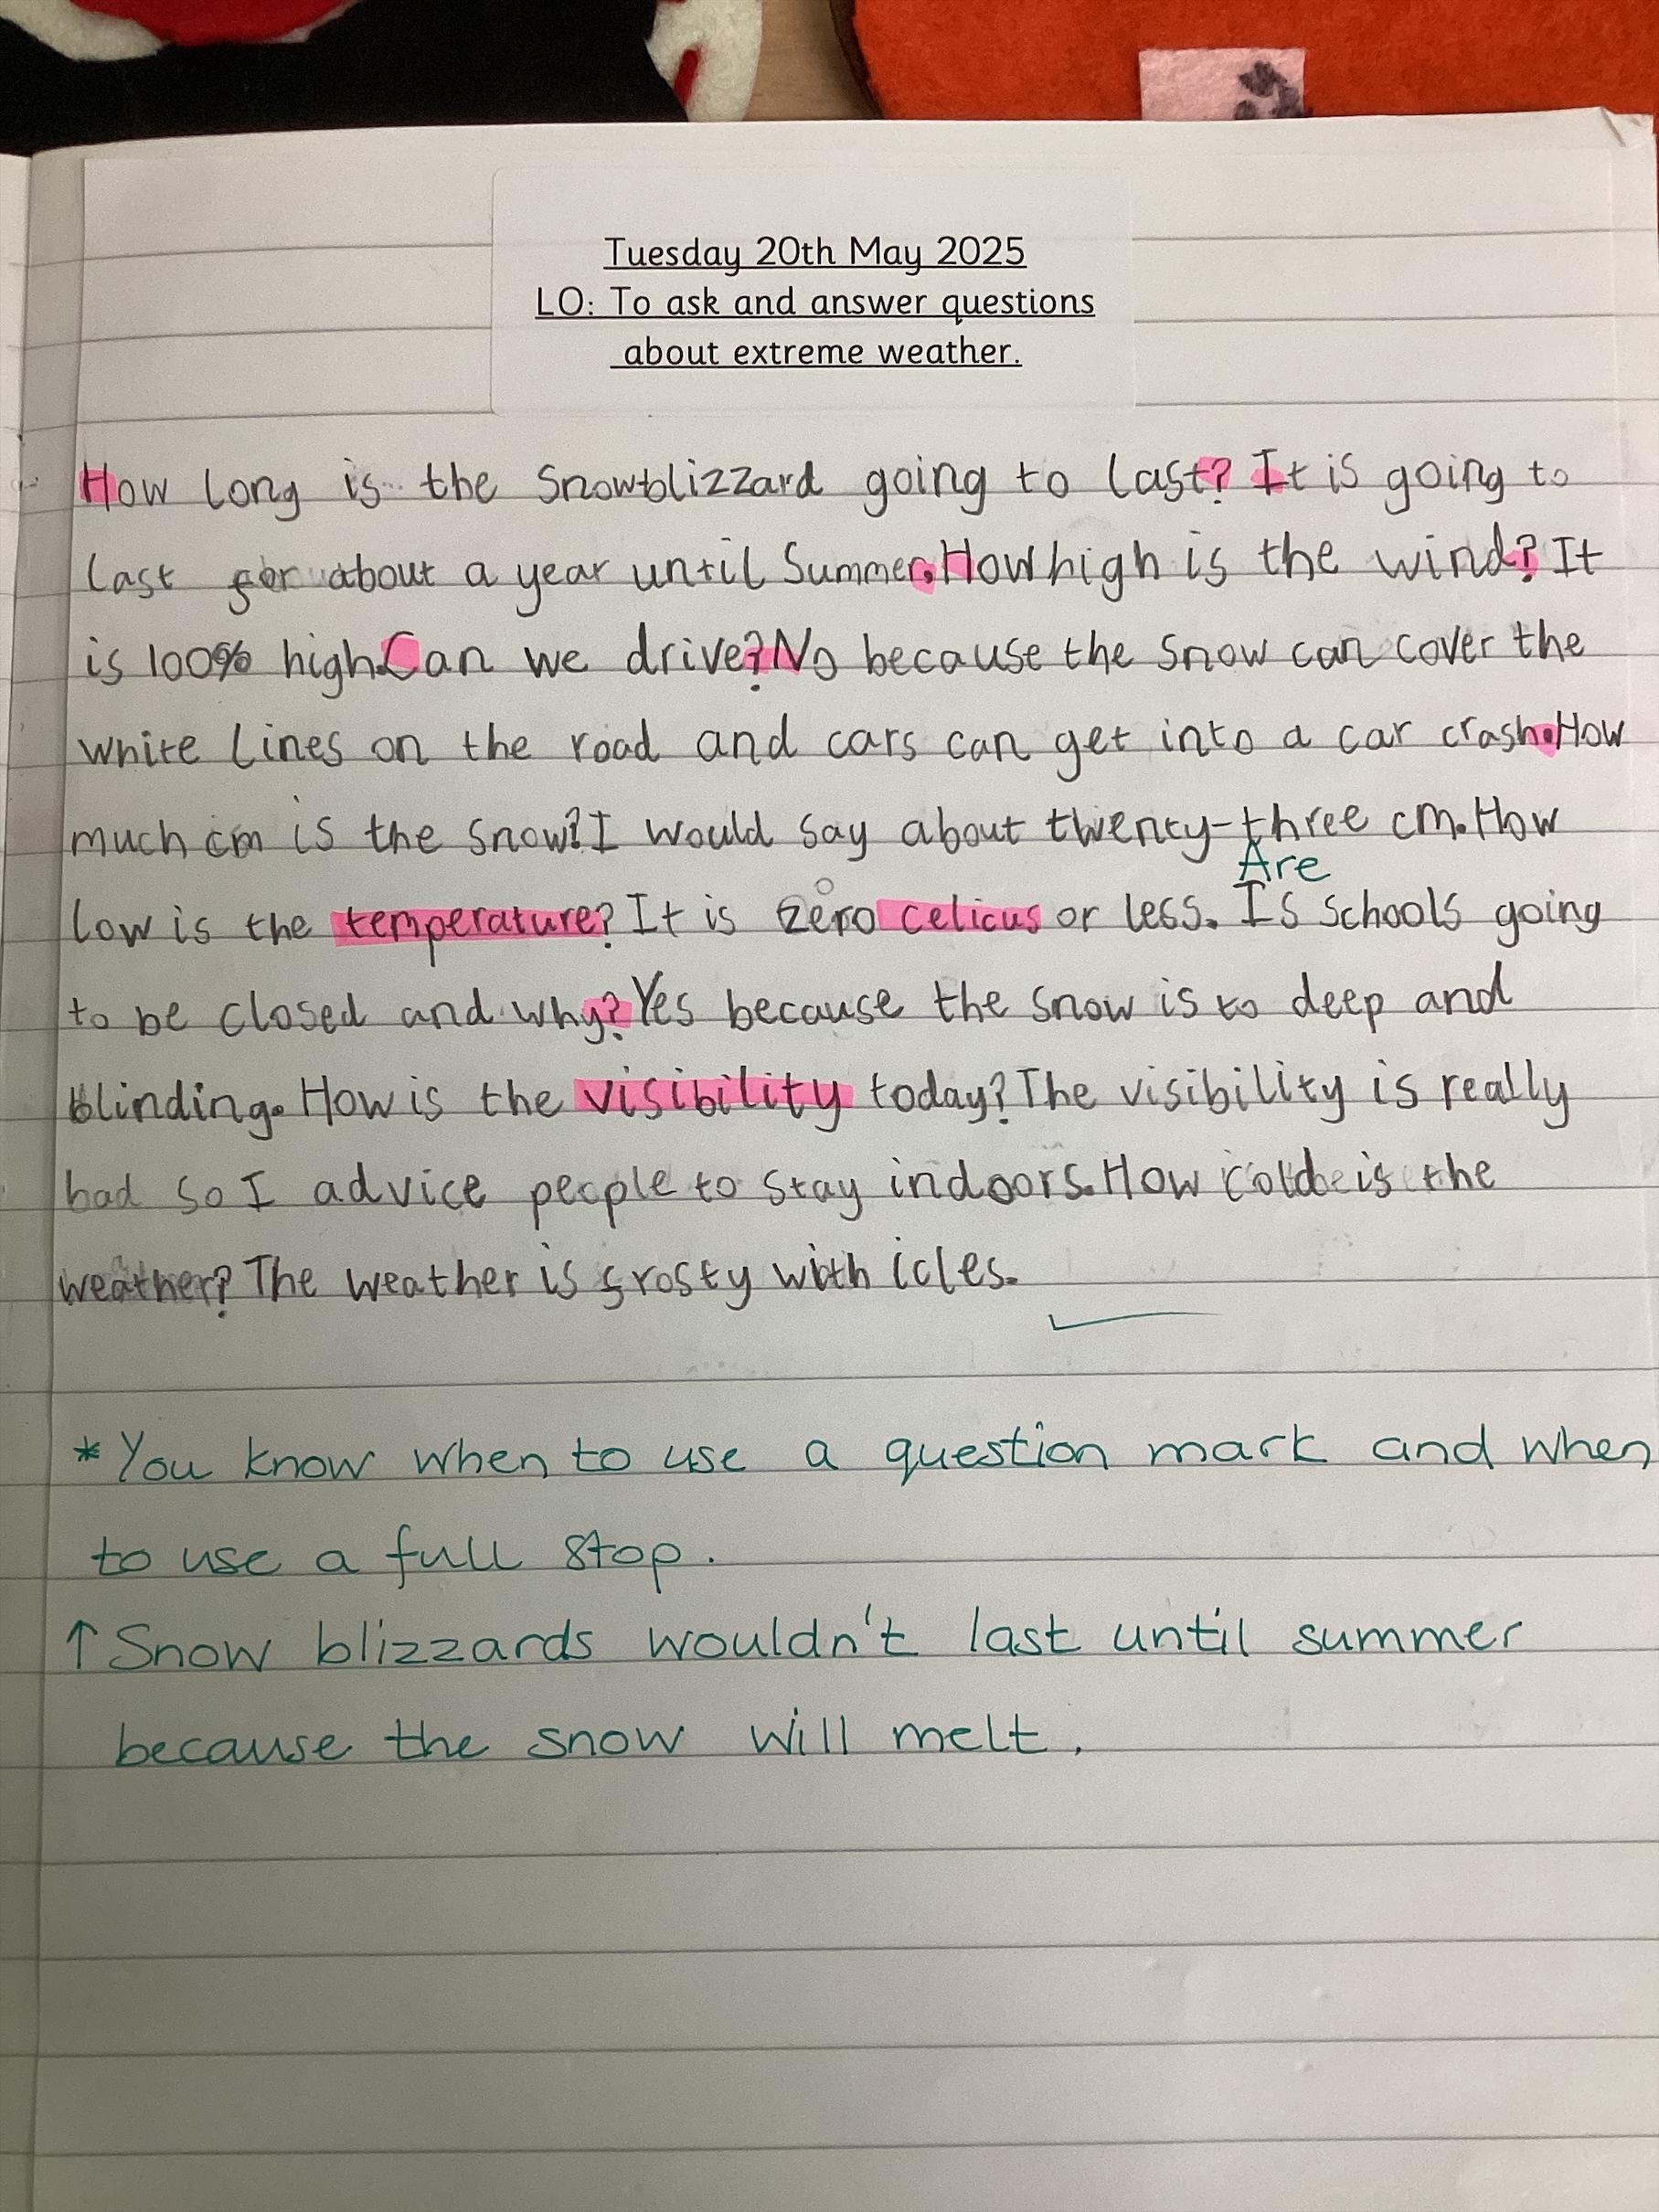 Tuesday 20th May 2025
LO: To ask and answer questions
about extreme weather.
How long is the Snowblizzard going to last? It is going to
last for about a year until Summer. How high is the wind? It
is 100% high. Can we drive? No because the snow can cover the
white lines on the road and cars can get into a car crash. How
much cm is the snow? I would say about twenty-three cm. How
Are
low is the temperature? It is zero celicus or less. Is schools going
to be closed and why? Yes because the snow is to deep and
blinding. How is the visibility today? The visibility is really
bad so I advice people to stay indoors. How cold is the
weather? The weather is frosty with icles.
*You know when to use a question mark and when
to use a full stop.
↑ Snow blizzards wouldn't last until summer
because the snow will melt.